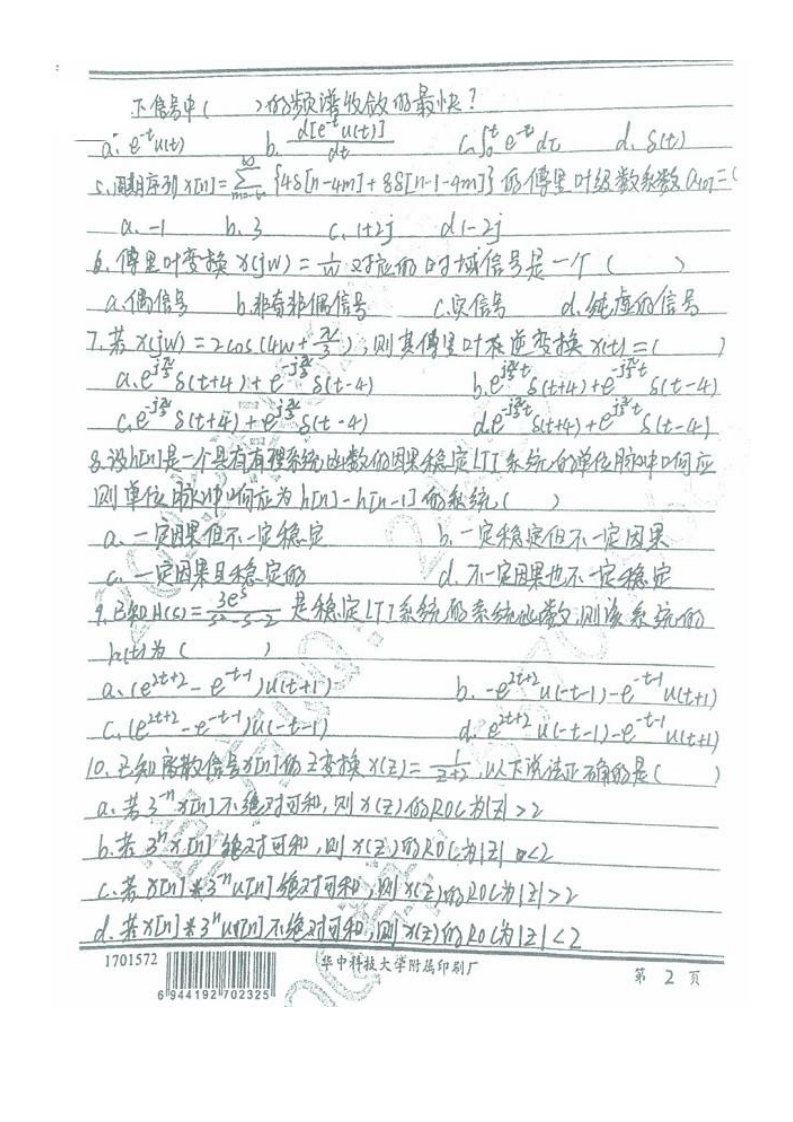 下信号中(  )的频谱收敛的最快?
a. e^{-t}u(t)  b. d[e^{-t}u(t)]/dt  c. ∫_0^t e^{-τ}dτ  d. δ(t)
5. 周期序列 x[n]=∑_{m=-∞}^{∞}{4δ[n-4m]+8δ[n-1-4m]} 的傅里叶级数系数 a_{107}=(
a. -1  b. 3  c. 1+2j  d 1-2j
6. 傅里叶变换 X(jw)=1/w 对应的时域信号是一个(  )
a. 偶信号  b. 非奇非偶信号  c. 实信号  d. 纯虚的信号
7. 若 X(jw)=2cos(4w+π/3), 则其傅里叶逆变换 x(t)=(  )
a. e^{jπ/3}δ(t+4)+e^{-jπ/3}δ(t-4)  b. e^{jπ/3t}δ(t+4)+e^{-jπ/3t}δ(t-4)
c. e^{-jπ/3}δ(t+4)+e^{jπ/3}δ(t-4)  d. e^{-jπ/3t}δ(t+4)+e^{jπ/3t}δ(t-4)
8. 设h[n]是一个具有有理系统函数的因果稳定LTI系统的单位脉冲响应
则单位脉冲响应为 h[n]-h[n-1] 的系统(  )
a. 一定因果但不一定稳定  b. 一定稳定但不一定因果
c. 一定因果且稳定的  d. 不一定因果也不一定稳定
9. 已知 H(s)=3e^s/(s²-s-2) 是稳定LTI系统的系统函数,则该系统的
h(t)为(  )
a. (e^{2t+2}-e^{-t-1})u(t+1)  b. -e^{2t+2}u(-t-1)-e^{-t-1}u(t+1)
c. (e^{2t+2}-e^{-t-1})u(-t-1)  d. e^{2t+2}u(-t-1)-e^{-t-1}u(t+1)
10. 已知离散信号x[n]的Z变换 X(z)=1/(z+2), 以下说法正确的是(  )
a. 若 3^{-n}x[n]不绝对可和, 则 X(z)的ROC为|z|>2
b. 若 3^n x[n] 绝对可和, 则 X(z)的ROC为|z|<2
c. 若 x[n]*3^n u[n] 绝对可和, 则 X(z)的ROC为|z|>2
d. 若 x[n]*3^n u[n]不绝对可和, 则 X(z)的ROC为|z|<2
1701572
华中科技大学附属印刷厂
第 2 页
6 944192 702325